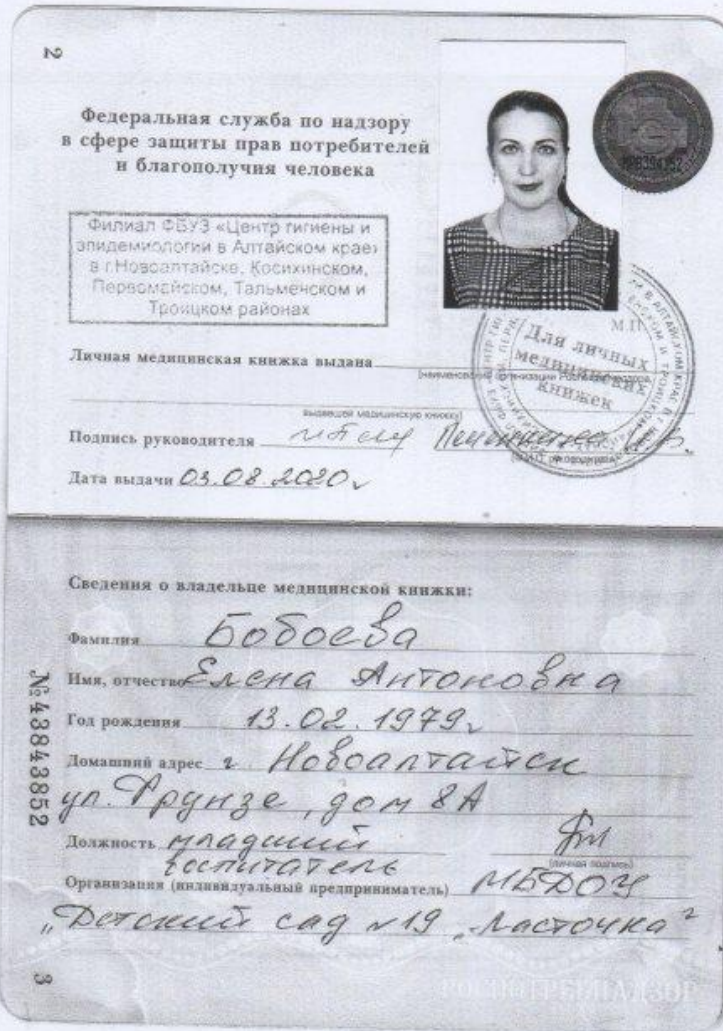 2
Федеральная служба по надзору
в сфере защиты прав потребителей
и благополучия человека
Филиал ФБУЗ «Центр гигиены и
эпидемиологии в Алтайском крае»
в г.Новоалтайске, Косихинском,
Первомайском, Тальменском и
Троицком районах
М.П.
Для личных
медицинских
книжек
Личная медицинская книжка выдана
выдавшей медицинскую книжку)
Подпись руководителя
Дата выдачи 03.08.2020г
Сведения о владельце медицинской книжки:
Фамилия Бобоева
Имя, отчество Елена Антоновна
Год рождения 13.02.1979г
Домашний адрес г Новоалтайск
ул. Фрунзе, дом 8А
Должность младший
воспитатель
(личная подпись)
Организация (индивидуальный предприниматель) МБДОУ
"Детский сад №19 „Ласточка"
№ 43843852
3
РОСПОТРЕБНАДЗОР